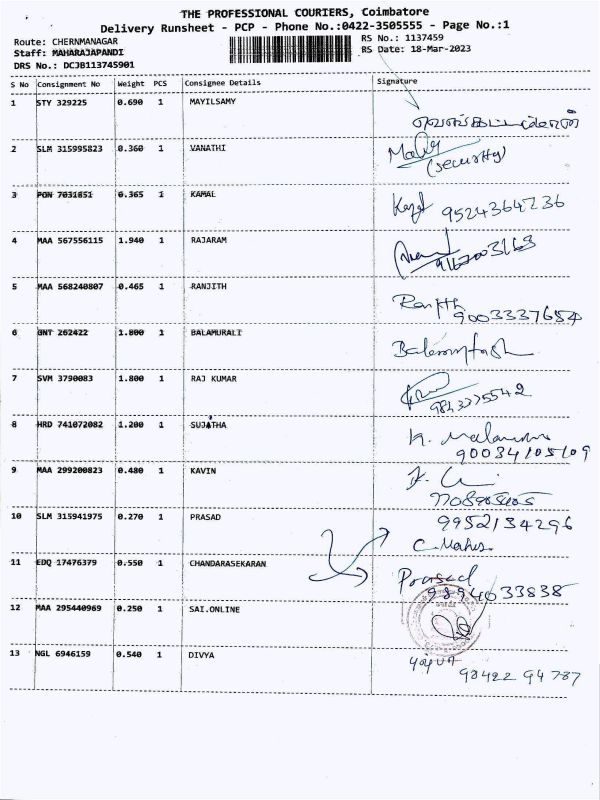 THE PROFESSIONAL COURIERS, Coimbatore
Delivery Runsheet - PCP - Phone No.:0422-3505555 - Page No.:1
Route: CHERNMANAGAR RS No.: 1137459
Staff: MAHARAJAPANDI RS Date: 18-Mar-2023
DRS No.: DCJB113745901
S No Consignment No Weight PCS Consignee Details Signature
1 STY 329225 0.690 1 MAYILSAMY
2 SLM 315995823 0.360 1 VANATHI
(security)
3 PON 7031651 0.365 1 KAMAL
9524364236
4 MAA 567556115 1.940 1 RAJARAM
5 MAA 568240807 0.465 1 RANJITH
9003337654
6 GNT 262422 1.800 1 BALAMURALI
7 SVM 3790083 1.800 1 RAJ KUMAR
9843375542
8 HRD 741072082 1.200 1 SUJATHA
90034105109
9 MAA 299200823 0.480 1 KAVIN
10 SLM 315941975 0.270 1 PRASAD
9952134296
C. Mahes.
11 EDQ 17476379 0.550 1 CHANDARASEKARAN
Prasad
9894033838
12 MAA 295440969 0.250 1 SAI.ONLINE
13 NGL 6946159 0.540 1 DIVYA
98422 94787